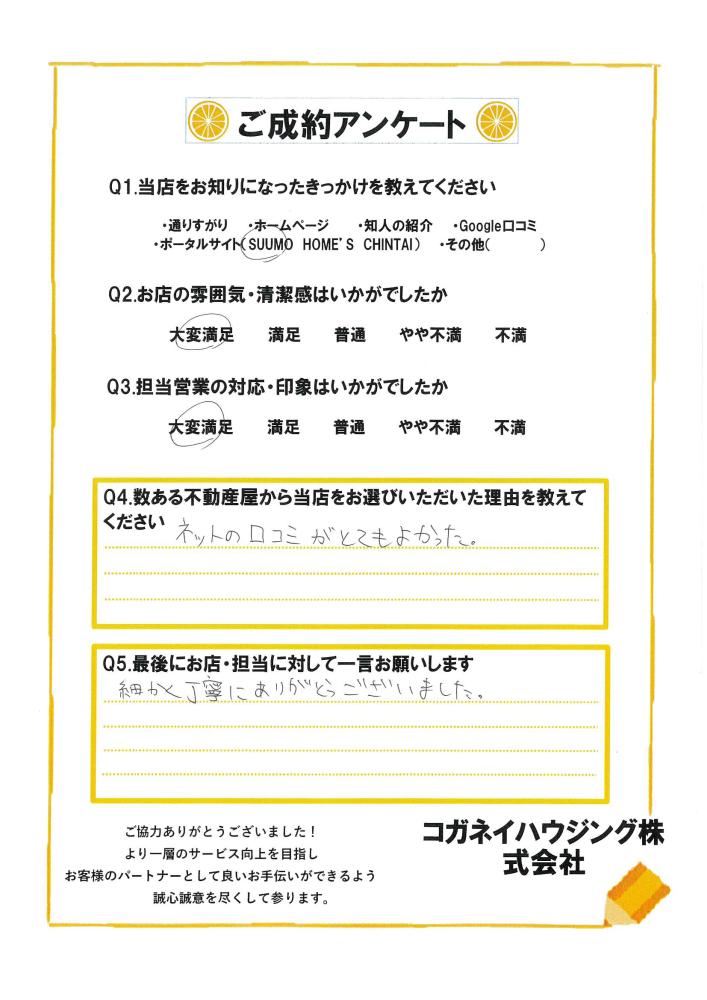 ご成約アンケート
Q1.当店をお知りになったきっかけを教えてください
・通りすがり ・ホームページ ・知人の紹介 ・Google口コミ
・ポータルサイト(SUUMO HOME'S CHINTAI) ・その他( )
Q2.お店の雰囲気・清潔感はいかがでしたか
大変満足 満足 普通 やや不満 不満
Q3.担当営業の対応・印象はいかがでしたか
大変満足 満足 普通 やや不満 不満
Q4.数ある不動産屋から当店をお選びいただいた理由を教えて
ください
ネットの口コミがとてもよかった。
Q5.最後にお店・担当に対して一言お願いします
細かく丁寧にありがとうございました。
ご協力ありがとうございました！
より一層のサービス向上を目指し
お客様のパートナーとして良いお手伝いができるよう
誠心誠意を尽くして参ります。
コガネイハウジング株
式会社